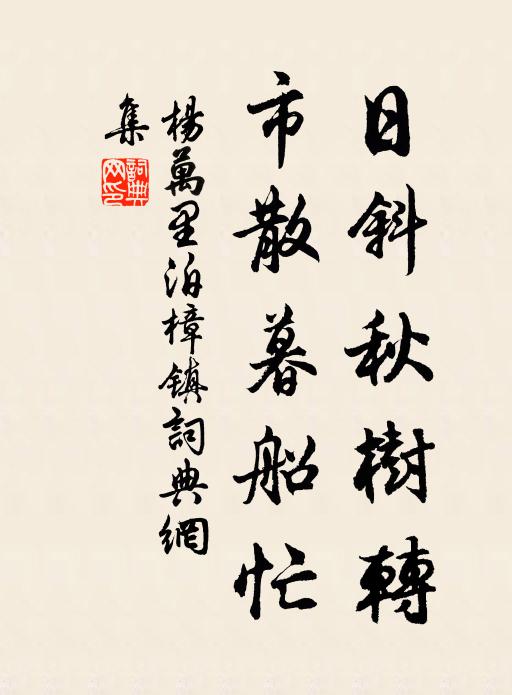 日斜秋樹轉
市散暮船忙
楊萬里泊樟鎮詞典網
集
詞典
網印